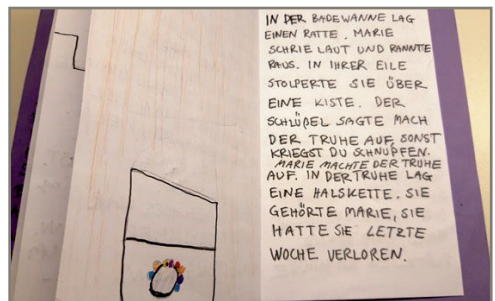 IN DER BADEWANNE LAG
EINEN RATTE. MARIE
SCHRIE LAUT UND RANNTE
RAUS. IN IHRER EILE
STOLPERTE SIE ÜBER
EINE KISTE. DER
SCHLÜßEL SAGTE MACH
DER TRUHE AUF, SONST
KRIEGST DU SCHNUPFEN.
MARIE MACHTE DER TRUHE
AUF. IN DER TRUHE LAG
EINE HALSKETTE. SIE
GEHÖRTE MARIE, SIE
HATTE SIE LETZTE
WOCHE VERLOREN.